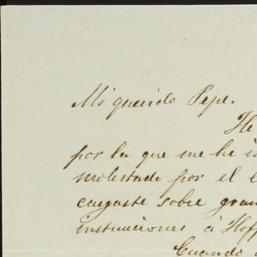 Mi querido Pepe.
He
por la que me he i
molestado por el
encargaste sobre gran
instrucciones á Hoff
Cuando